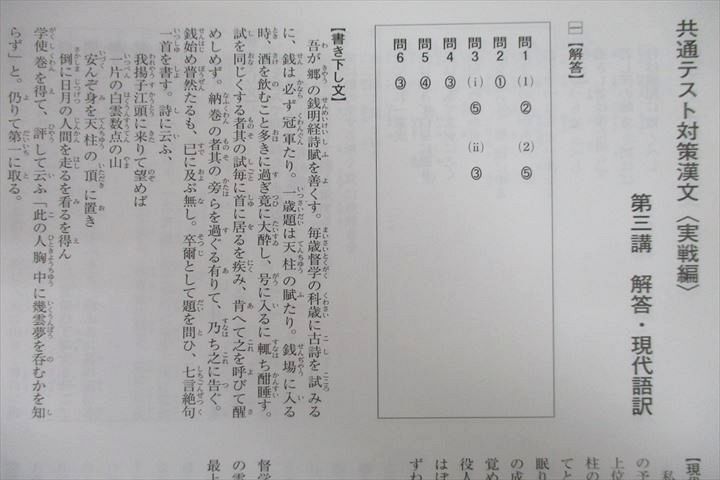 共通テスト対策漢文〈実戦編〉
第三講　解答・現代語訳
一【解答】
問1 (1) ② (2) ⑤
問2 ①
問3 (ⅰ) ⑤ (ⅱ) ③
問4 ③
問5 ④
問6 ③
【書き下し文】
吾が郷の銭明経詩賦を善くす。毎歳督学の科歳に古詩を試みる
に、銭は必ず冠軍たり。一歳題は天柱の賦たり。銭場に入る
時、酒を飲むこと多きに過ぎ竟に大酔し、号に入るに輒ち酣睡す。
試を同じくする者其の試毎に首に居るを疾み、肯へて之を呼びて醒
めしめず。納巻の者其の旁らを過ぐる有りて、乃ち之に告ぐ。
銭始め瞢然たるも、已に及ぶ無し。卒爾として題を問ひ、七言絶句
一首を書す。詩に云ふ、
我揚子江頭に来りて望めば
一片の白雲数点の山
安んぞ身を天柱の頂に置き
倒に日月の人間を走るを看るを得ん
学使巻を得て、評して云ふ「此の人胸中に幾雲夢を呑むかを知
らず」と。仍りて第一に取る。
【現
私
の予
上位
柱の
てと
眠り
の成
覚め
役人
はぼ
ずね
督学
の雲
最上